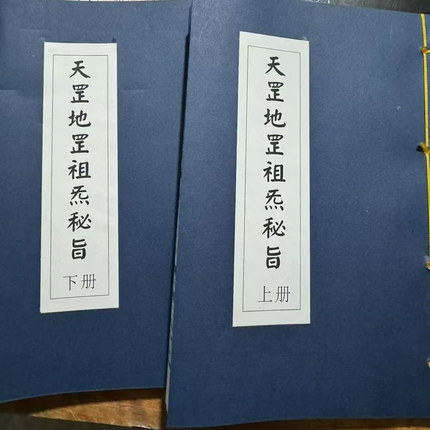 天罡地罡祖炁秘旨
上册
天罡地罡祖炁秘旨
下册